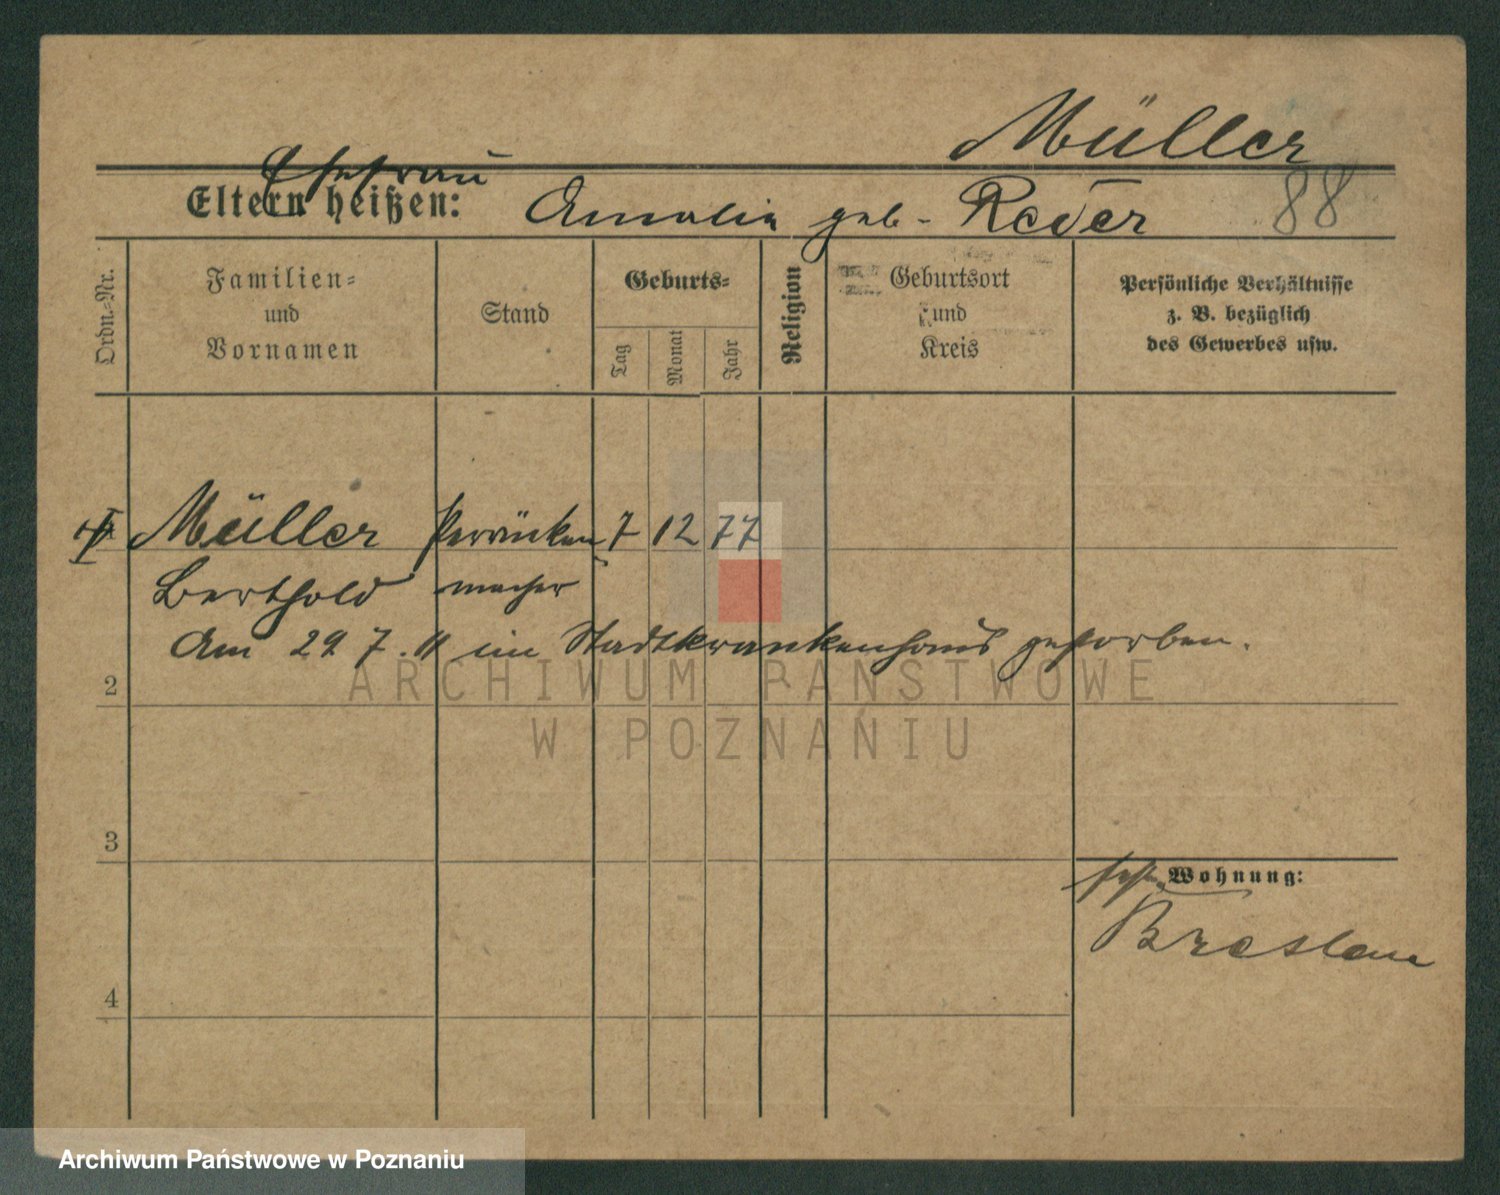 Müller
Ehefrau
Eltern heißen: Amalie geb. Reder 88
Ordn.-Nr.
Familien- und Vornamen
Stand
Geburts-
Tag
Monat
Jahr
Religion
Geburtsort und Kreis
Persönliche Verhältnisse z. B. bezüglich des Gewerbes usw.
Müller Perrücken 7 12 77
Berthold macher
Am 29 7. 11 im Stadtkrankenhaus gestorben.
2
ARCHIWUM PAŃSTWOWE
W POZNANIU
3
Wohnung:
Breslau
4
Archiwum Państwowe w Poznaniu